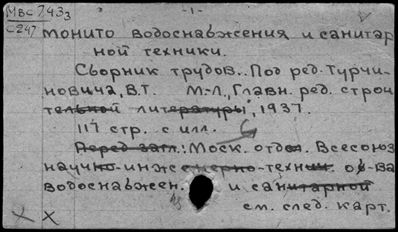 МВС 743з
С247
-1-
МОНИТО водоснабжения и санитар
ной техники.
Сборник трудов.. Под ред. Турчи-
новича, В.Т. М.-Л., Главн. ред. строи
тельной литературы, 1937.
117 стр. с илл.
Перед загл.: Моск. отдел. Всесоюз
научно-инженерно-технич. об-ва
водоснабжен. и санитарной
см. след. карт.